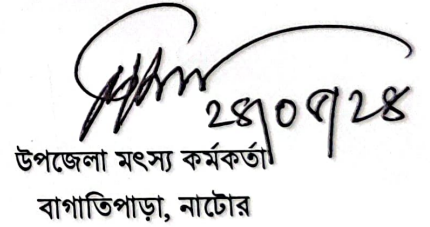 ২৪/০৫/২৪
উপজেলা মৎস্য কর্মকর্তা
বাগাতিপাড়া, নাটোর